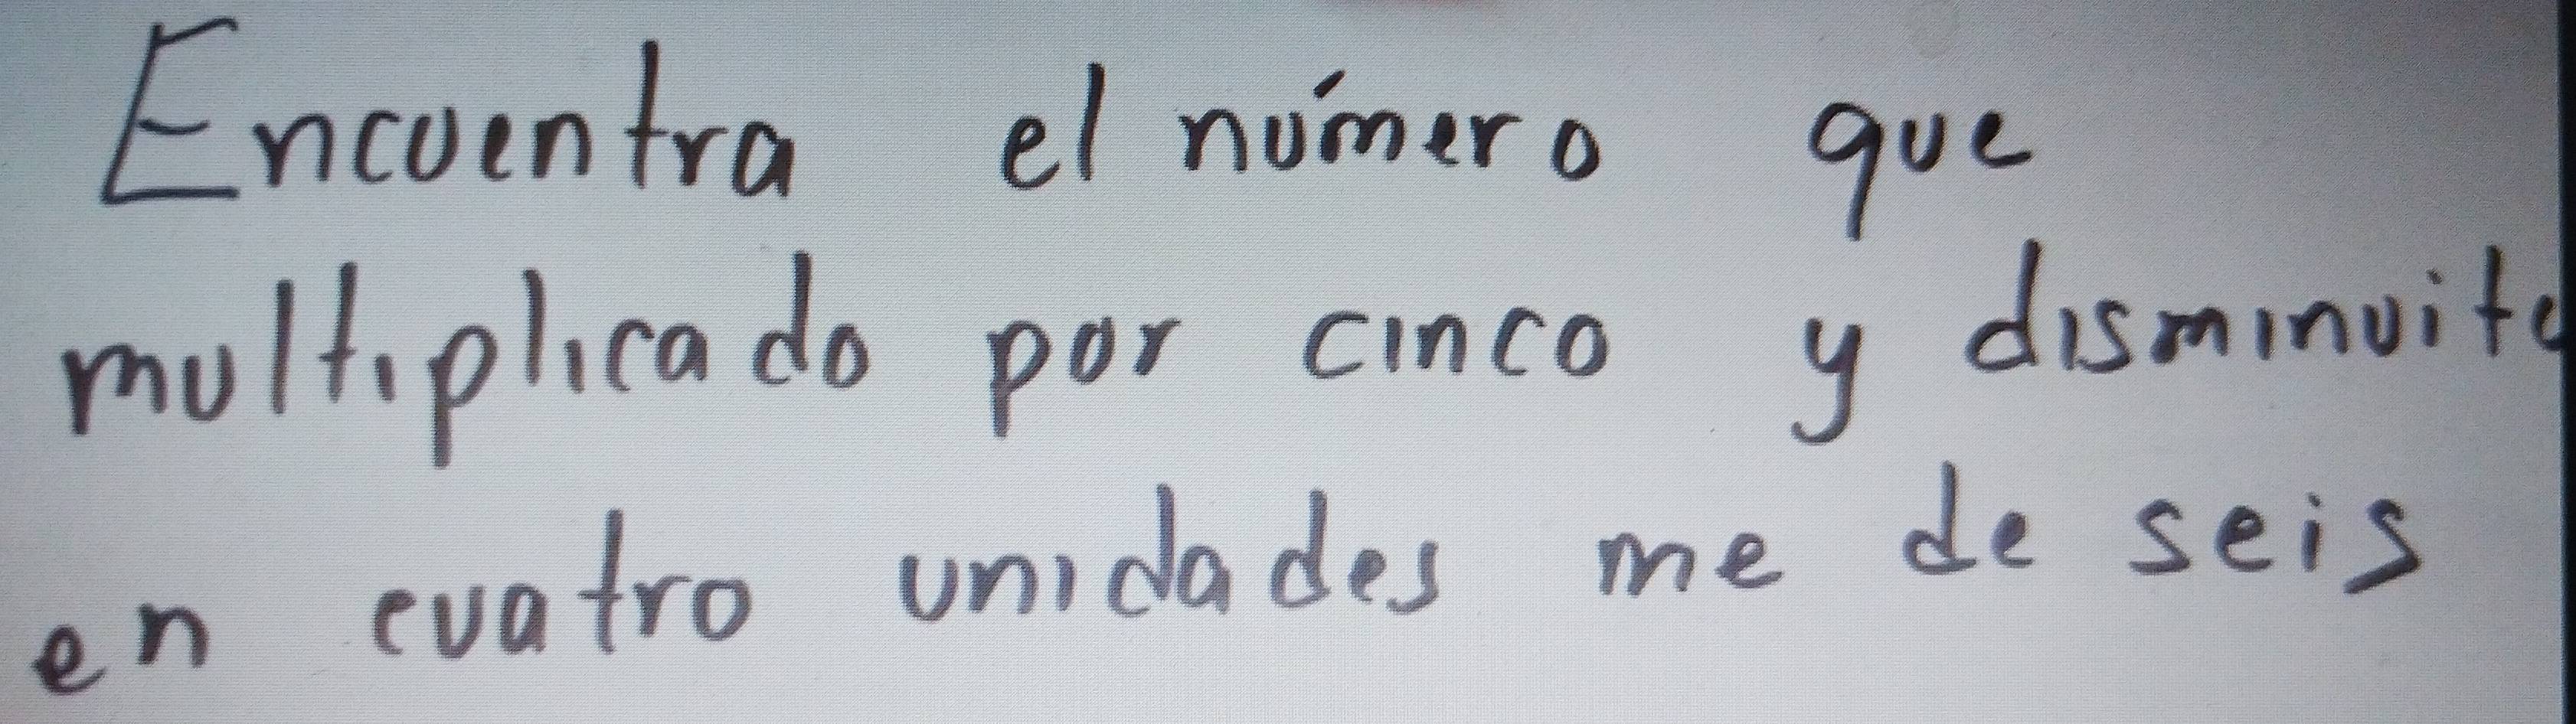 Encuentra el número que
multiplicado por cinco y disminuito
en cuatro unidades me de seis